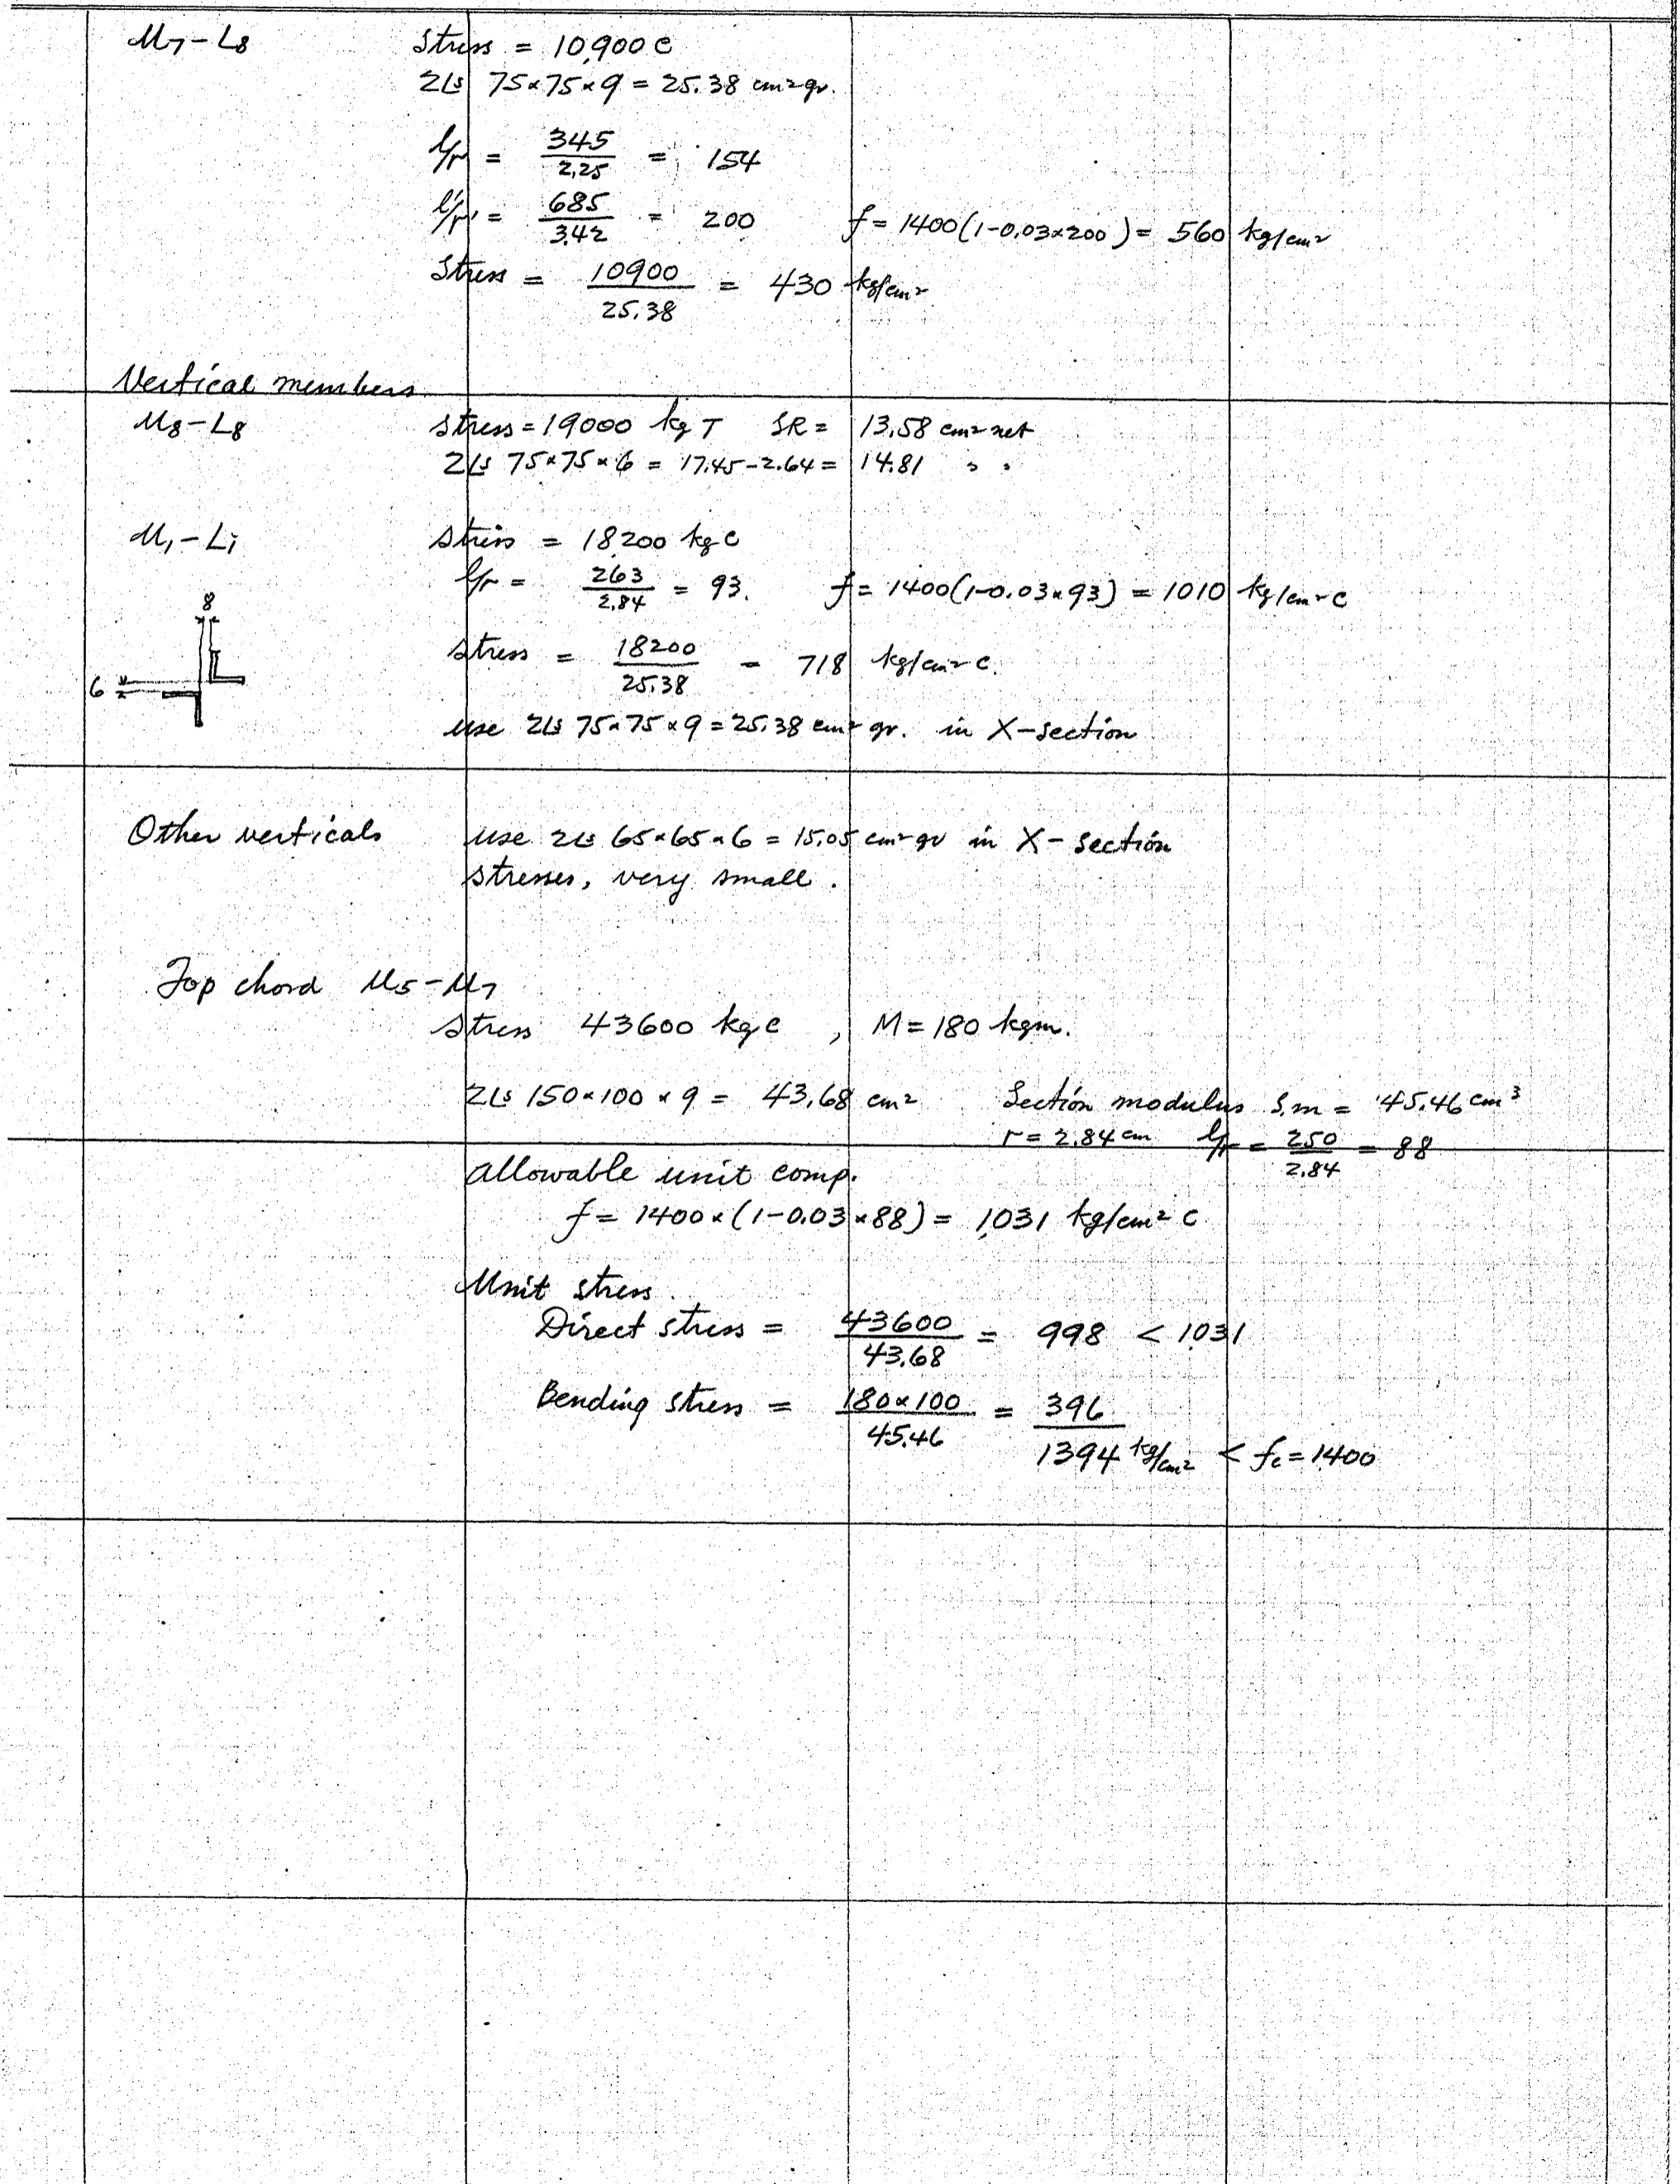 U7-L8 Stress = 10,900 C
2Ls 75×75×9 = 25.38 cm² gr.
l/r = 345/2.25 = 154
l'/r' = 685/3.42 = 200 f = 1400(1-0.03×200) = 560 kg/cm²
Stress = 10900/25.38 = 430 kg/cm²
Vertical members
U8-L8 Stress = 19000 kg T SR = 13.58 cm² net
2Ls 75×75×6 = 17.45-2.64 = 14.81 " "
U1-L1 Stress = 18200 kg C
l/r = 263/2.84 = 93. f = 1400(1-0.03×93) = 1010 kg/cm² C
8
Stress = 18200/25.38 = 718 kg/cm² C.
6
use 2Ls 75×75×9 = 25.38 cm² gr. in X-section
Other verticals use 2Ls 65×65×6 = 15.05 cm² gr in X-section
stresses, very small.
Top chord U5-U7
Stress 43600 kg C , M = 180 kgm.
2Ls 150×100×9 = 43.68 cm² Section modulus S.m = 45.46 cm³
r = 2.84 cm l/r = 250/2.84 = 88
Allowable unit comp.
f = 1400×(1-0.03×88) = 1,031 kg/cm² C
Unit stress.
Direct stress = 43600/43.68 = 998 < 1031
Bending stress = 180×100/45.46 = 396
1394 kg/cm² < fc = 1400